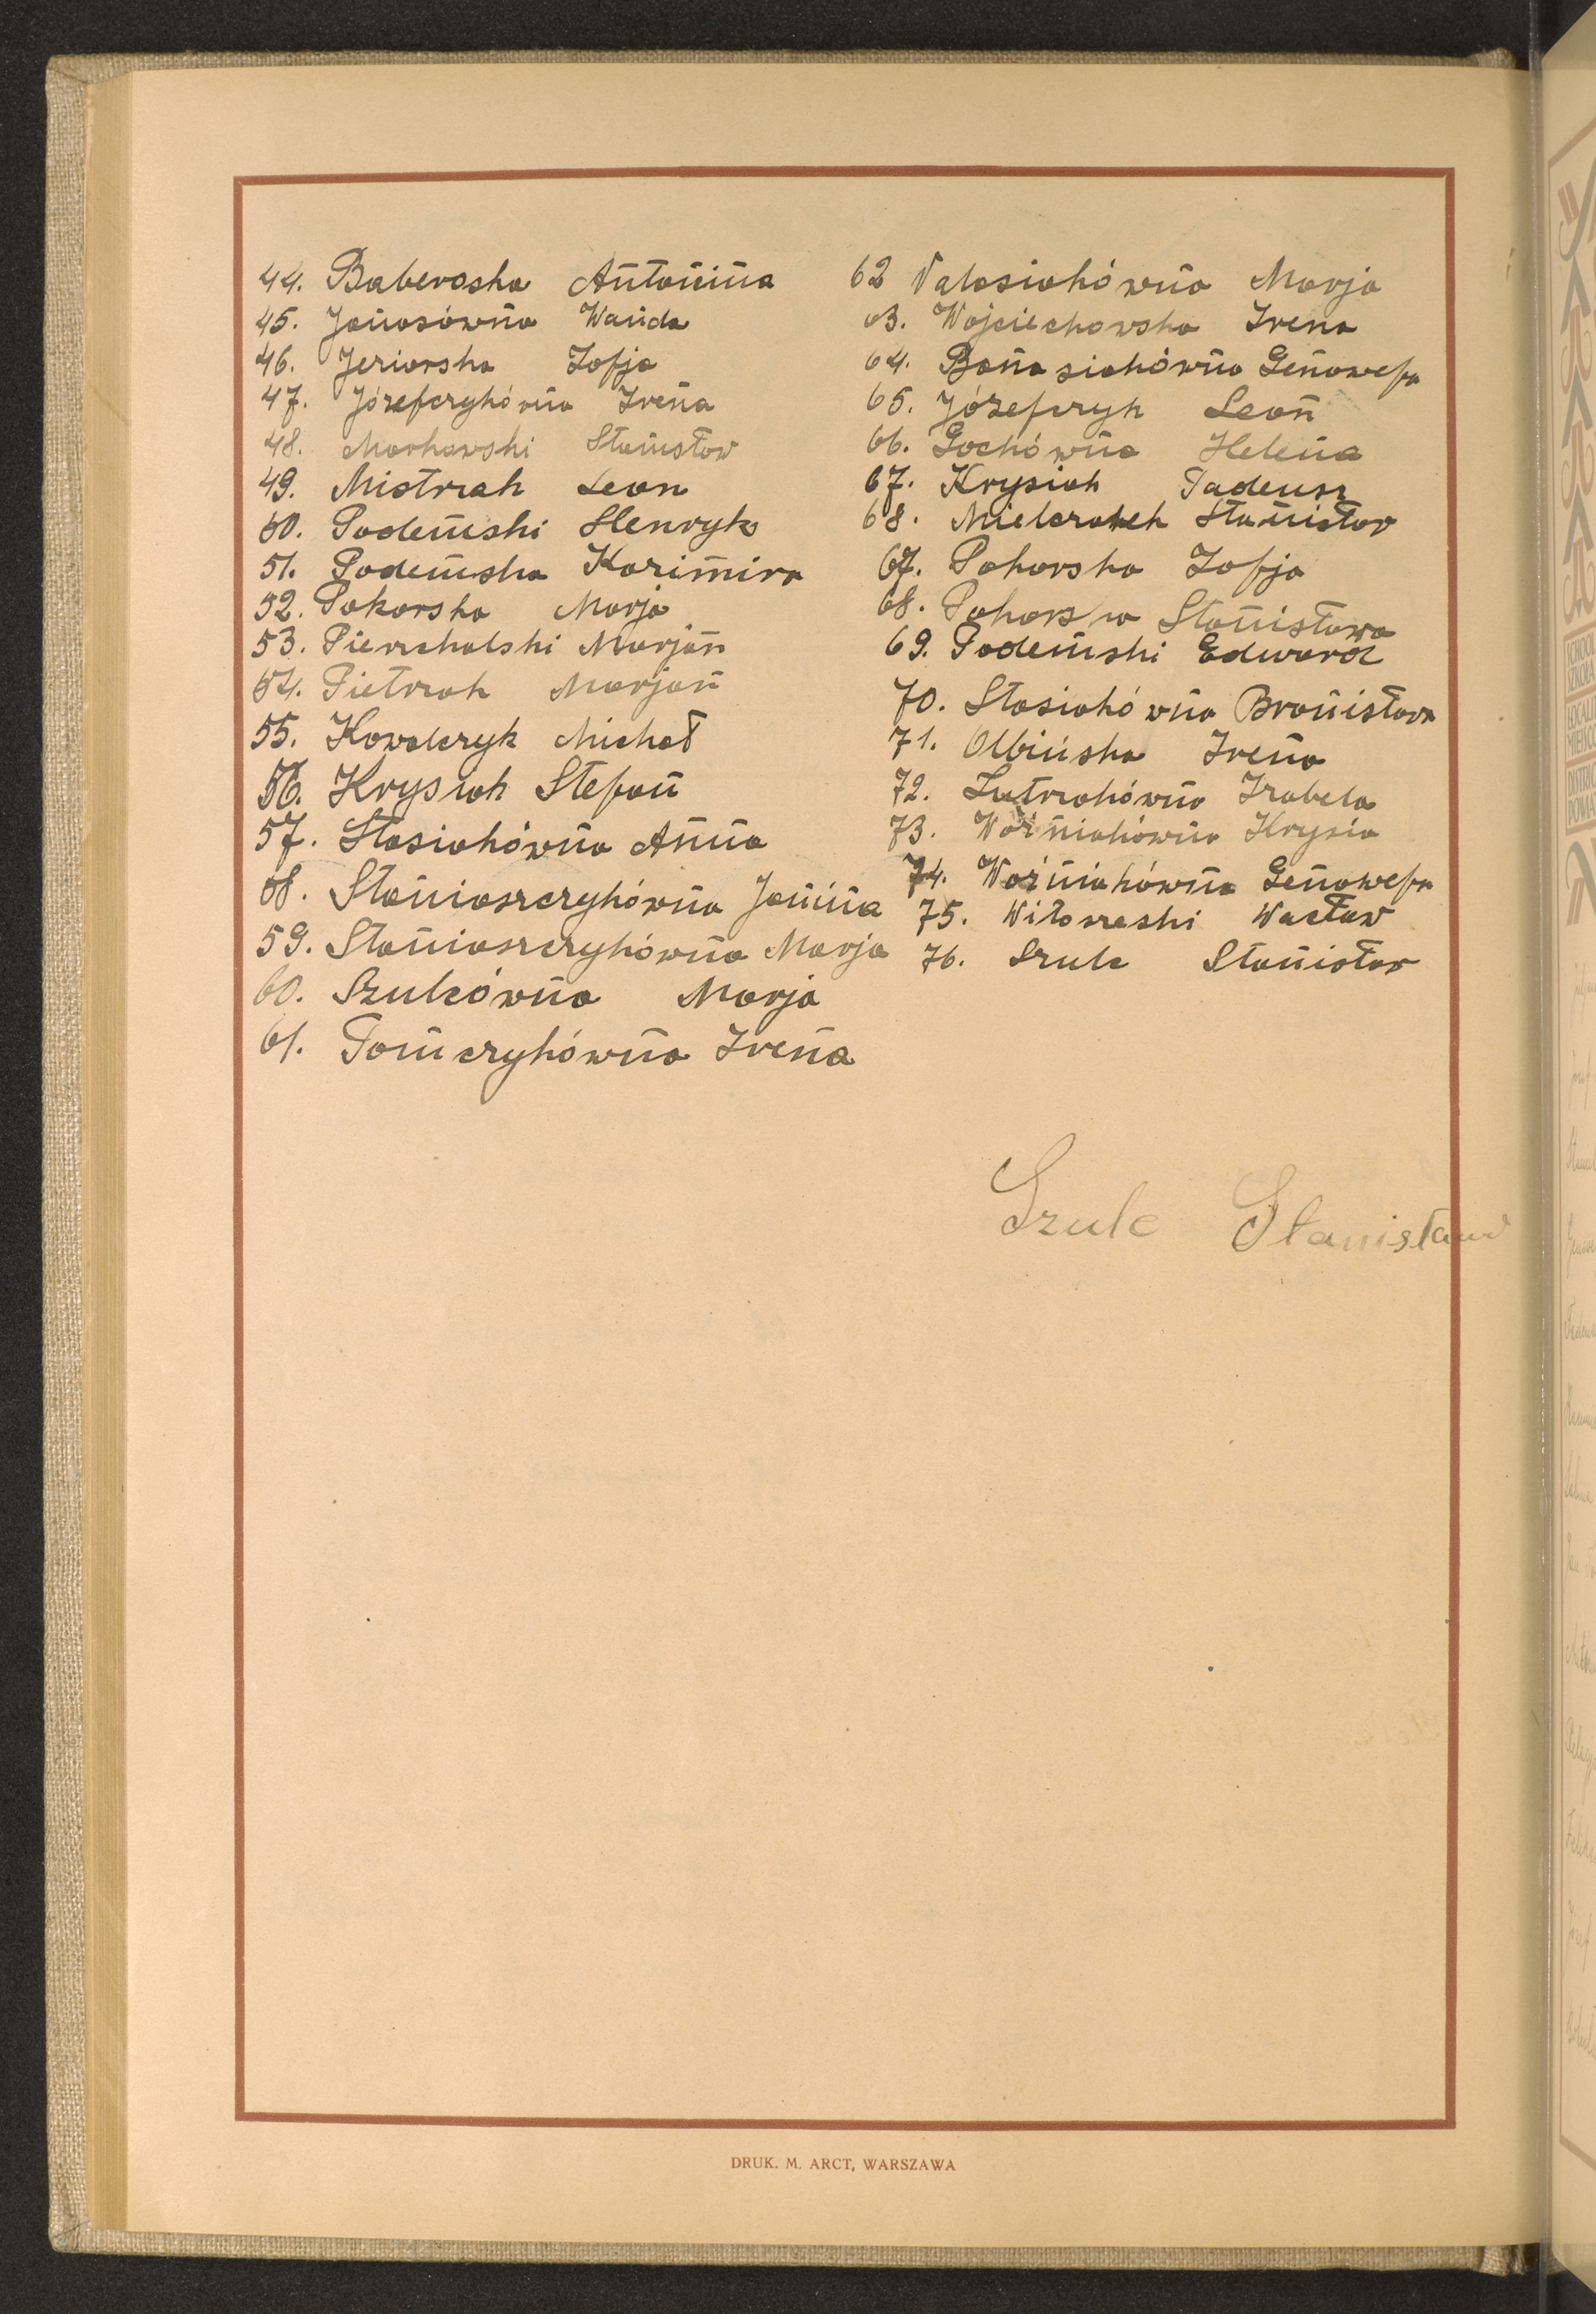 44. Baberoska Antonina
45. Janasówna Wanda
46. Jeziorska Zofja
47. Józefczykówna Irena
48. Markowski Stanisław
49. Mistrzak Leon
50. Podemski Henryk
51. Podemska Kazimira
52. Pokorska Marja
53. Pierzchalski Marjan
54. Pietrzak Marjan
55. Kowalczyk Michał
56. Krysiak Stefan
57. Stasiakówna Anna
58. Staniaszczykówna Janina
59. Staniaszczykówna Marja
60. Szulcówna Marja
61. Tomczykówna Irena
62 Walasiakówna Marja
63. Wojciechowska Irena
64. Banasiakówna Genowefa
65. Józefczyk Leon
66. Sochówna Helena
67. Krysiak Tadeusz
68. Mielczarek Stanisław
67. Pokorska Zofja
68. Stanisława
69. Podemski Edward
70. Stasiakówna Bronisława
71. Olbińska Irena
72. Lutrzakówna Izabela
73. Woźniakówna Krysia
74. Woźniakówna Genowefa
75. Wacław
76. Szulc Stanisław
Szulc Stanisław
DRUK. M. ARCT, WARSZAWA